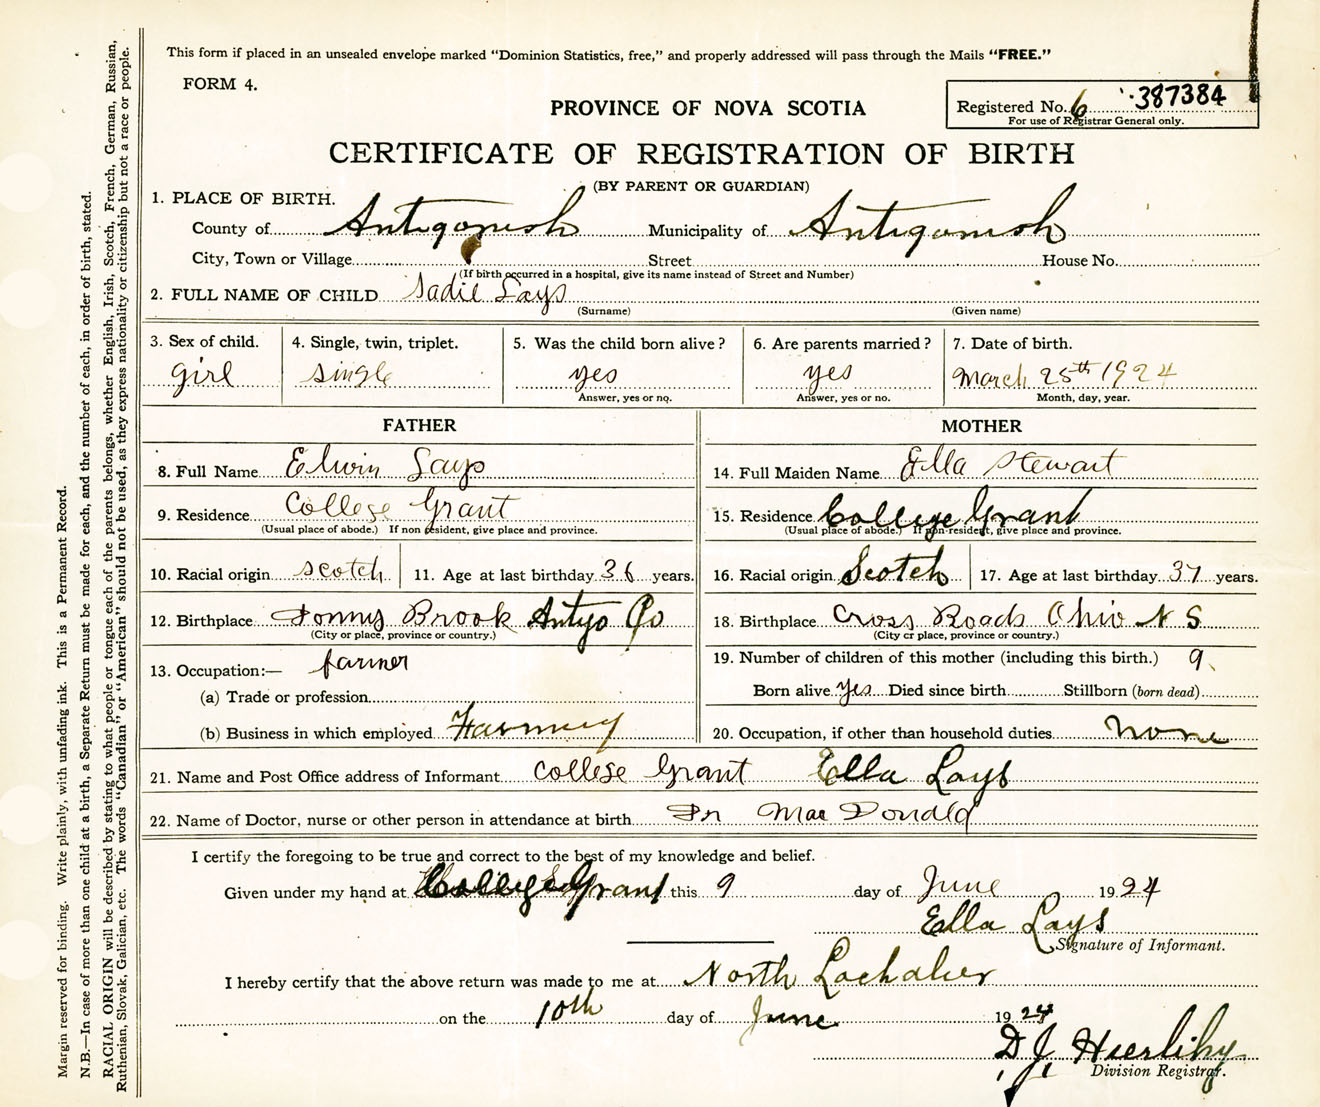 This form if placed in an unsealed envelope marked "Dominion Statistics, free," and properly addressed will pass through the Mails "FREE."
FORM 4.
PROVINCE OF NOVA SCOTIA
Registered No. 6 387384
For use of Registrar General only.
CERTIFICATE OF REGISTRATION OF BIRTH
(BY PARENT OR GUARDIAN)
1. PLACE OF BIRTH.
County of Antigonish Municipality of Antigonish
City, Town or Village Street House No.
(If birth occurred in a hospital, give its name instead of Street and Number)
2. FULL NAME OF CHILD Sadie Lays
(Surname) (Given name)
3. Sex of child. 4. Single, twin, triplet. 5. Was the child born alive? 6. Are parents married? 7. Date of birth.
girl single yes yes March 25th 1924
Answer, yes or no. Answer, yes or no. Month, day, year.
FATHER MOTHER
8. Full Name Elwin Lays 14. Full Maiden Name Ella Stewart
9. Residence College Grant 15. Residence College Grant
(Usual place of abode.) If non resident, give place and province. (Usual place of abode.) If non-resident, give place and province.
10. Racial origin scotch 11. Age at last birthday 36 years. 16. Racial origin Scotch 17. Age at last birthday 37 years.
12. Birthplace Brook Antgo Co 18. Birthplace Cross Roads Ohio N S
(City or place, province or country.) (City or place, province or country.)
13. Occupation:— farmer 19. Number of children of this mother (including this birth.) 9
(a) Trade or profession Born alive yes Died since birth Stillborn (born dead)
(b) Business in which employed Farming 20. Occupation, if other than household duties none
21. Name and Post Office address of Informant College Grant Ella Lays
22. Name of Doctor, nurse or other person in attendance at birth Dr Mac Donald
I certify the foregoing to be true and correct to the best of my knowledge and belief.
Given under my hand at College Grant this 9 day of June 1924
Ella Lays
Signature of Informant.
I hereby certify that the above return was made to me at North Lochaber
on the 10th day of June 1924
D J Hierlihy
Division Registrar.
Margin reserved for binding. Write plainly, with unfading ink. This is a Permanent Record.
N.B.—In case of more than one child at a birth, a Separate Return must be made for each, and the number of each, in order of birth, stated.
RACIAL ORIGIN will be described by stating to what people or tongue each of the parents belongs, whether English, Irish, Scotch, French, German, Russian,
Ruthenian, Slovak, Galician, etc. The words "Canadian" or "American" should not be used, as they express nationality or citizenship but not a race or people.